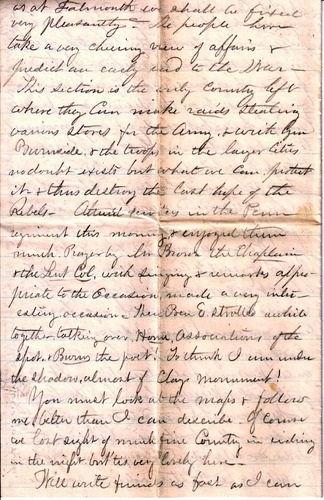 as at Falmouth we shall be fixed
very pleasantly - The people here
take a very cheering view of affairs &
predict an early end to the War -
This section is the only Country left
where they can make raids stealing
various stores for the Army, & with Gen
Burnside, & the troops in the larger Cities
no doubt exists but what we can protect
it & thus destroy the last hope of the
Rebels - Attend services in the Penn
regiment this morning & enjoyed them
much. Prayer by Mr Brown the Chaplain
& the Lieut Col, with singing & remarks appro-
priate to the Occasion made a very inter-
esting occasion - Then Ben & I strolled awhile
together talking over Home, Associations of the
spot, & Burns the poet! To think I am under
the shadow, almost of Clays monument!
You must look at the maps & follow
me better than I can describe. Of course
we lost sight of much fine Country in riding
in the night but tis very lovely here -
Will write friends as fast as I can